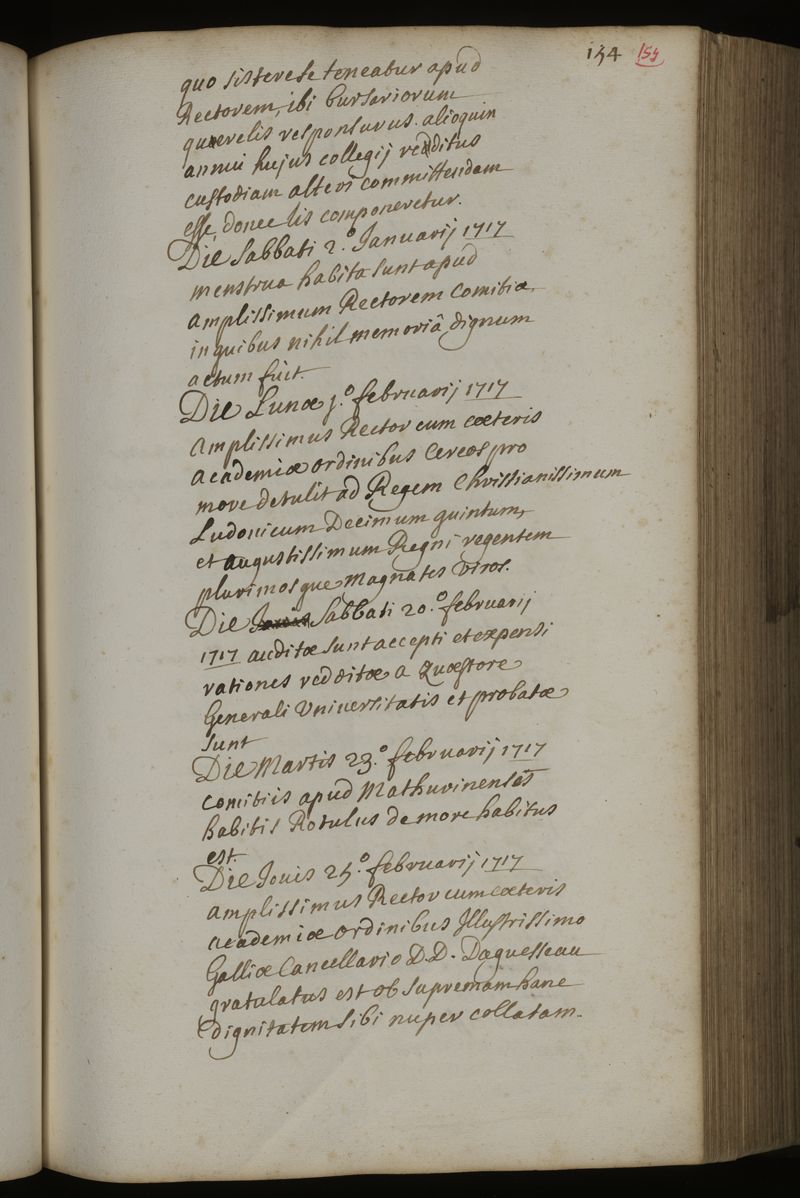 154 155
quo sisterese teneatur apud
Rectorem, ibi bursariorum
querelis responsurus. alioquin
annui hujus collegij redditus
custodiam alteri committendam
esse, donec lis componeretur.
Die Sabbati 2.º Januarij 1717
menstrua habita sunt apud
amplissimum Rectorem Comitia
in quibus nihil memoriâ dignum
actum fuit.
Die Lunæ j.º februarij 1717
Amplissimus Rector cum cæteris
academiæ ordinibus Cereos pro
more detulit ad Regem Christianissimum
Ludovicum Decimum quintum,
et augustissimum Regni regentem
plurimosque Magnates Viros.
Die Jovis Sabbati 20.º februarij
1717 auditæ sunt accepti et expensi
rationes redditæ a Quæstore
Generali Universitatis et probatæ
sunt
Die Martis 23.º februarij 1717
comitiis apud Mathurinenses
habitis Rotulus de more habitus
est.
Die Jouis 25.º februarij 1717
amplissimus Rector cum cæteris
academiæ ordinibus Illustrissimo
Galliæ Cancellario D.D. Daguesseau
gratulatus est ob supremam hanc
dignitatem sibi nuper collatam.